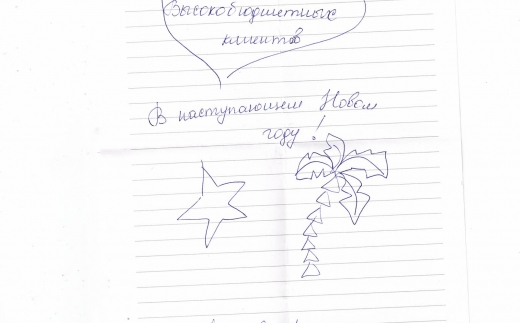 Высокобюджетных
клиентов
В наступающем Новом
году!